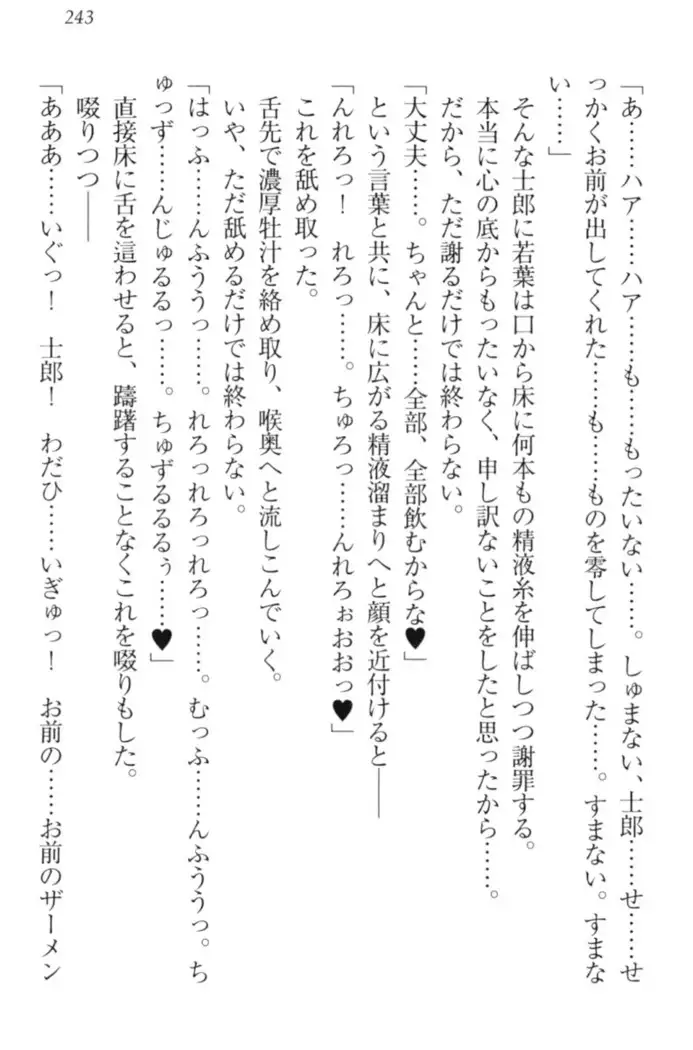 243
「あ……ハア……も……もったいない……。しゅまない、士郎……せ……せ
っかくお前が出してくれた……も……ものを零してしまった……。すまない。すまな
い……」
そんな士郎に若葉は口から床に何本もの精液糸を伸ばしつつ謝罪する。
本当に心の底からもったいなく、申し訳ないことをしたと思ったから……。
だから、ただ謝るだけでは終わらない。
「大丈夫……。ちゃんと……全部、全部飲むからな♥」
という言葉と共に、床に広がる精液溜まりへと顔を近付けると――
「んれろっ！　れろっ……。ちゅろっ……んれろぉおおっ♥」
これを舐め取った。
舌先で濃厚牡汁を絡め取り、喉奥へと流しこんでいく。
いや、ただ舐めるだけでは終わらない。
「はっふ……んふううっ……。れろっれろっれろっ……。むっふ……んふううっ。ち
ゅっず……んじゅるるっ……。ちゅずるるるぅ……♥」
直接床に舌を這わせると、躊躇することなくこれを啜りもした。
啜りつつ――
「あああ……いぐっ！　士郎！　わだひ……いぎゅっ！　お前の……お前のザーメン